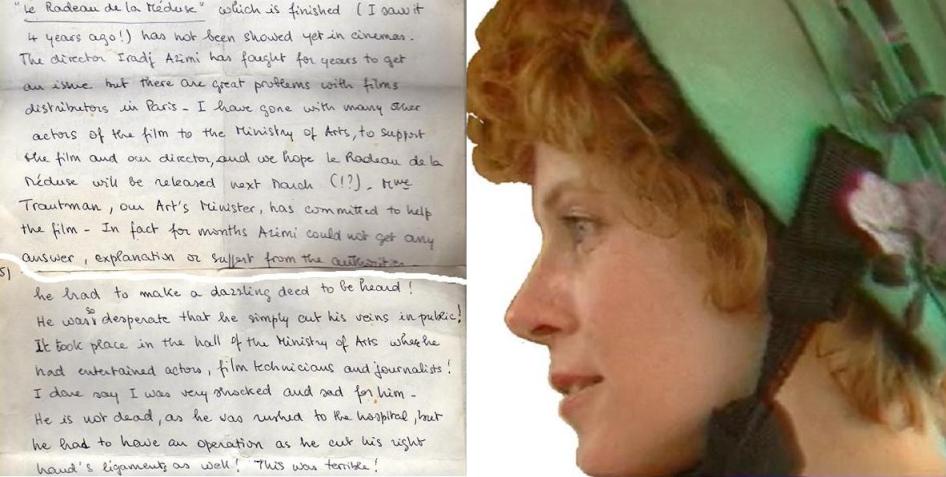 "Le Radeau de la Méduse" which is finished (I saw it
4 years ago!) has not been showed yet in cinemas.
The director Iradj Azimi has faught for years to get
an issue but there are great problems with films
distributors in Paris - I have gone with many other
actors of the film to the Ministry of Arts, to support
the film and our director, and we hope le Radeau de la
Méduse will be released next March (!?) - Mme
Trautman, our Art's Minister, has committed to help
the film - In fact for months Azimi could not get any
answer, explanation or support from the authorities
5)
he had to make a dazzling deed to be heard!
He was so desperate that he simply cut his veins in public!
It took place in the hall of the Ministry of Arts where he
had entertained actors, film technicians and journalists!
I dare say I was very shocked and sad for him -
He is not dead, as he was rushed to the hospital, but
he had to have an operation as he cut his right
hand's ligaments as well! This was terrible!